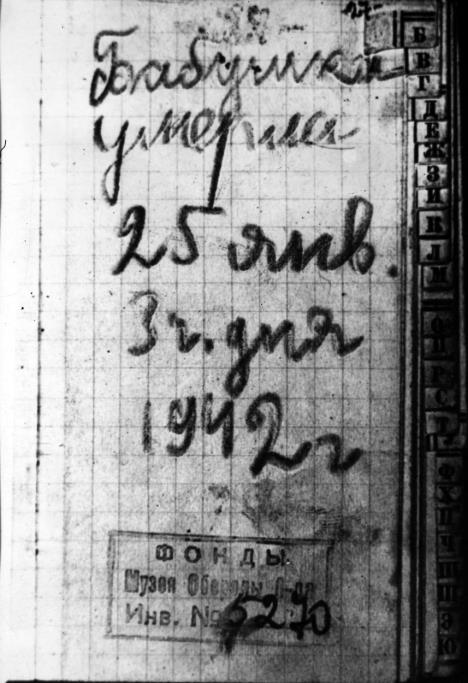 Бабушка
умерла
25 янв.
3 ч. дня
1942 г
ФОНДЫ
Музея Обороны Л-да
Инв. № 5270
Б
В
Г
Д
Е
Ж
З
И
К
Л
М